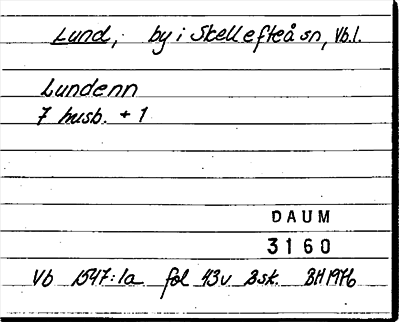 Lund, by i Skellefteå sn, Vb.l.
Lundenn
7 husb. + 1
DAUM
3160
Vb 1547:1a fol 43v Bsk. BH 1976